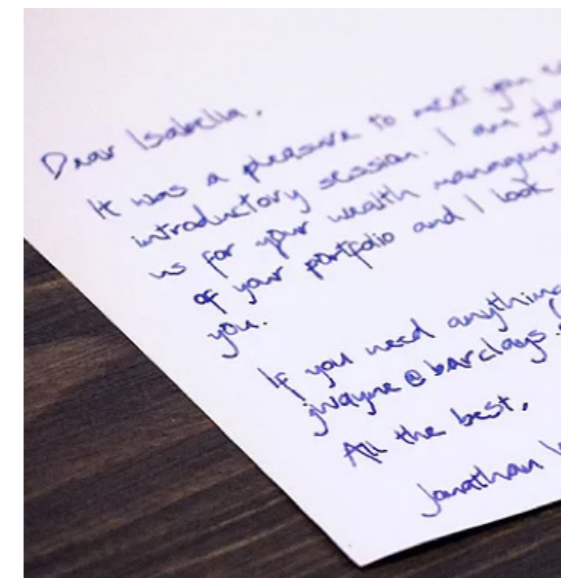 Dear Isabella,
It was a pleasure to meet you
introductory session. I am
us for your wealth
of your portfolio and I look
you.
If you need anything
jwayne@barclays.
All the best,
Jonathan